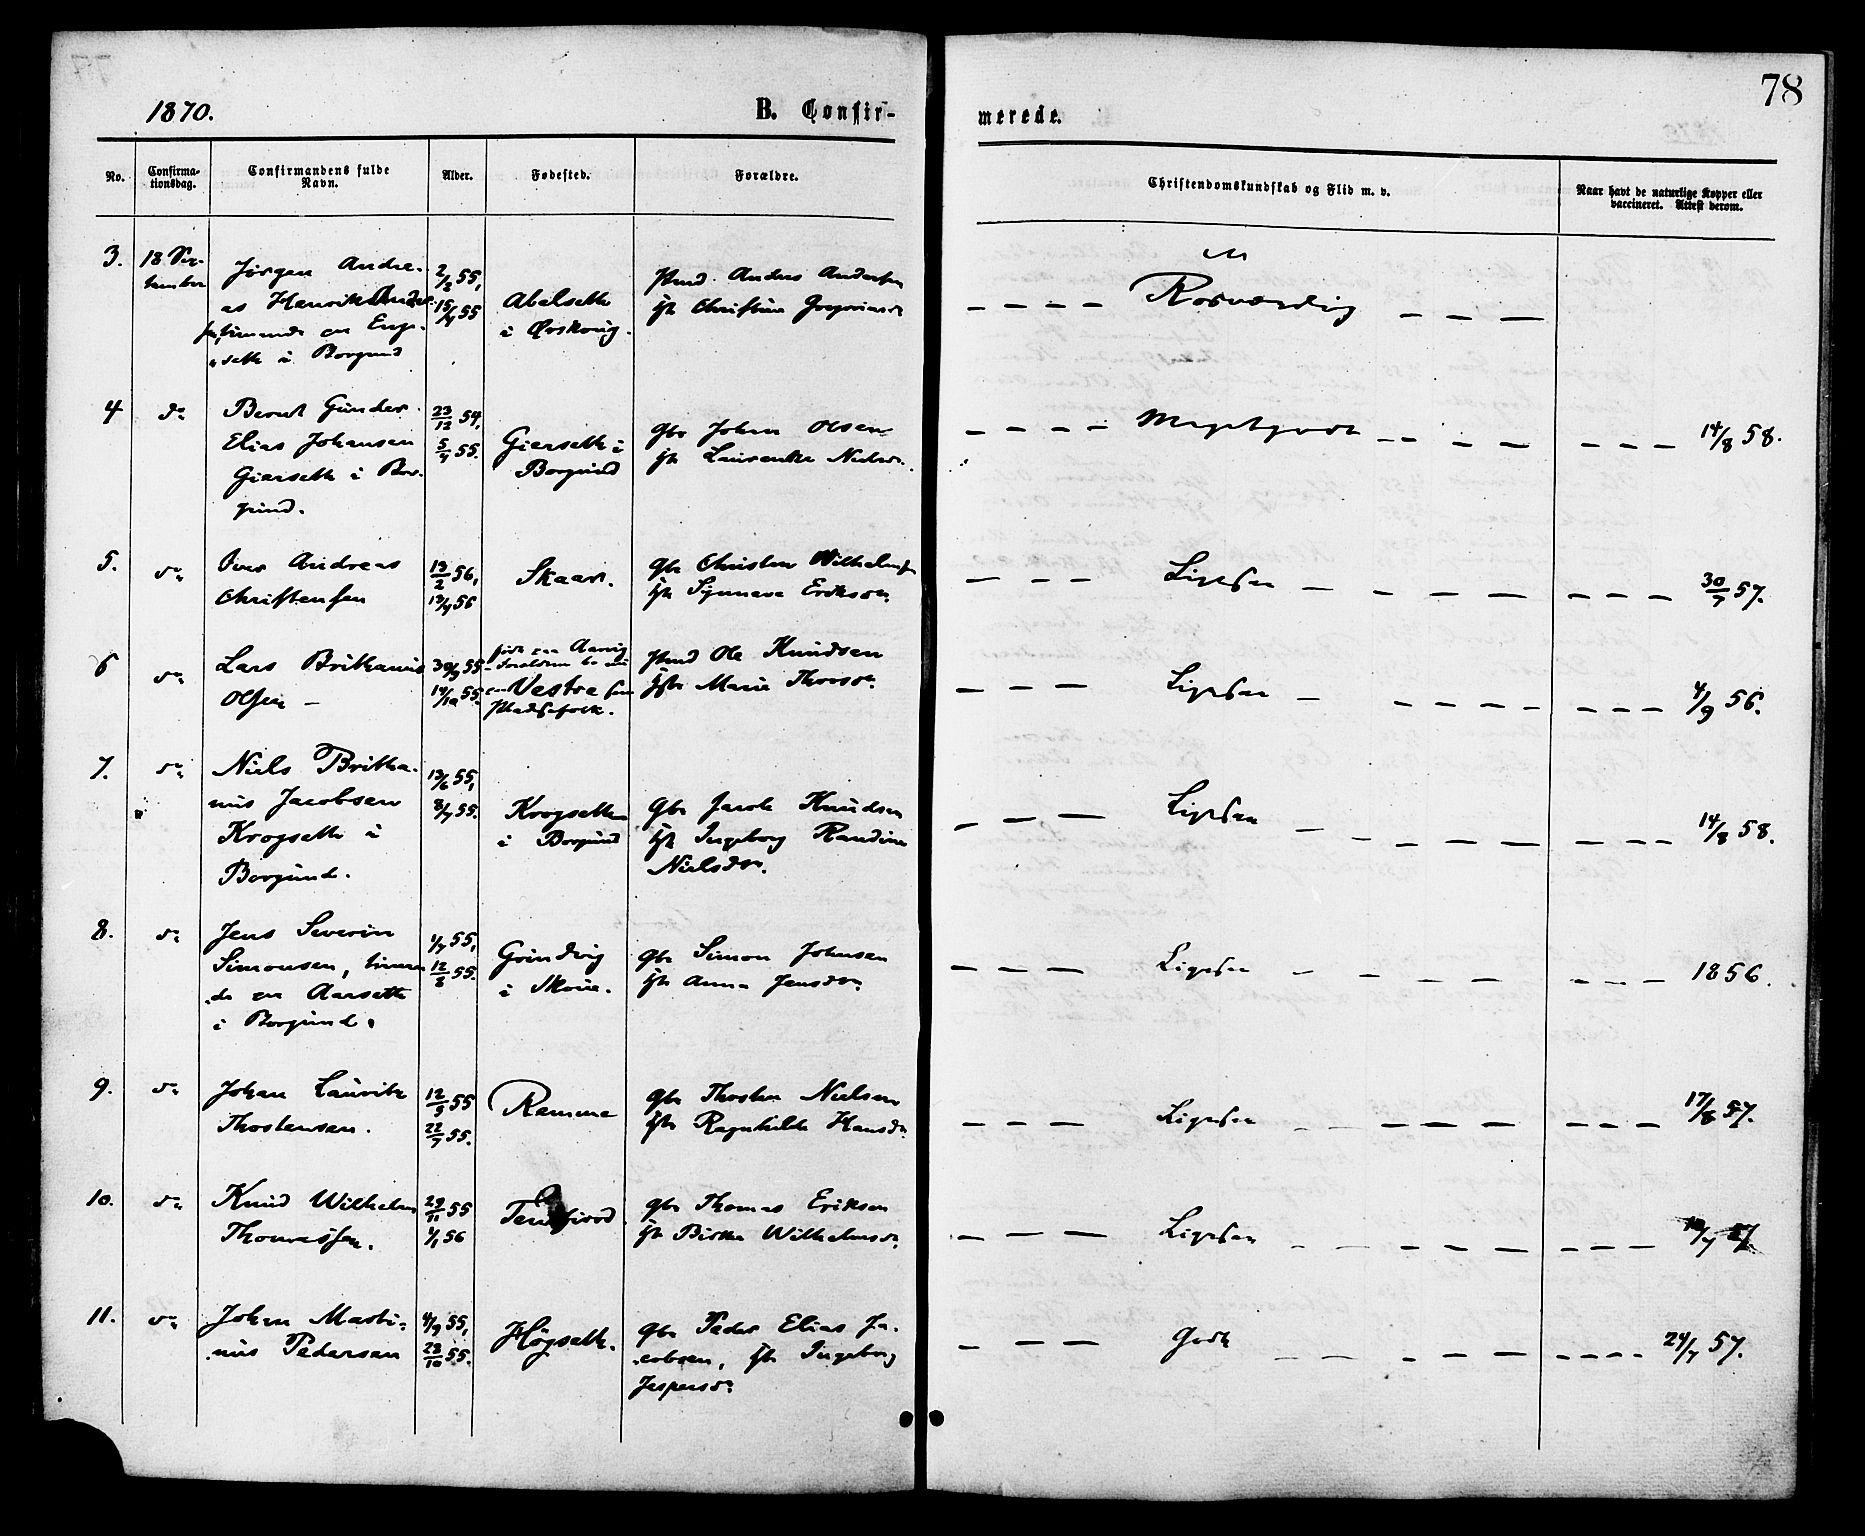 78
1870.
B. Confir-
merede.
No.
Confirma-
tionsdag.
Confirmandens fulde
Navn.
Alder.
Fødested.
Forældre.
Christendomskundskab og Flid m. v.
Naar havt de naturlige Kopper eller
vaccineret. Attest derom.
3.
18 Sep-
tember
Jørgen Andre-
as Henrik Ander-
sen, tienende paa Enge-
sæth i Borgund
2/2 55,
15/4 55
Abelseth
i Ørskoug.
Anders Andersen
Christine
Rosværdig
4
do
Bernt Gunder
Elias Johansen
Gierseth i Bor-
gund.
23/12 54,
5/4 55.
Gierseth i
Borgund
Gbr Johan Olsen
Laurentse Nielsdr.
Megetgodt
14/8 58.
5.
do
Iver Andreas
Christensen
13/2 56,
13/4 56
Skaar.
Gbr Christen Wilhelmsen
Synneve Eriksdr.
Ligesaa
30/7 57.
6
do
Lars Brithanius
Olsen
30/9 55
14/10 55.
født paa Aarvig
Forældrene bo nu
paa Vestre som
Pladsefolk.
Ole Knudsen
Marie Thorsdr.
Ligesaa
4/9 56.
7.
do
Niels Britha-
nius Jacobsen
Krogseth i
Borgund.
13/6 55,
8/7 55.
Krogseth
i Borgund
Gbr Jacob Knudsen
Ingeborg Randine
Nielsdr.
Ligesaa
14/8 58.
8.
do
Jens Severin
Simonsen, tienen-
de paa Aarseth
i Borgund.
1/7 55,
Grindvig
i Skoue.
Gbr Simon Johnsen
Anna Jensdr.
Ligesaa
1856.
9.
do
Johan Lauritz
Thostensen.
12/5 55
22/7 55.
Ramme
Gbr Thosten Nielsen
Ragnhilde Hansdr.
Ligesaa
17/8 57.
10.
do
Knud Wilhelm
Thomassen.
29/11 55
1/1 56
Tennfiord
Gbr Thomas Eriksen
Birthe Wilhelmsdr.
Ligesaa
11.
do
Johan Marti-
nus Pedersen
4/9 55,
28/10 55.
Høgseth.
Gbr Peder Elias Ja-
cobsen, Ingeborg
Jespersdr
Godt
24/7 57.